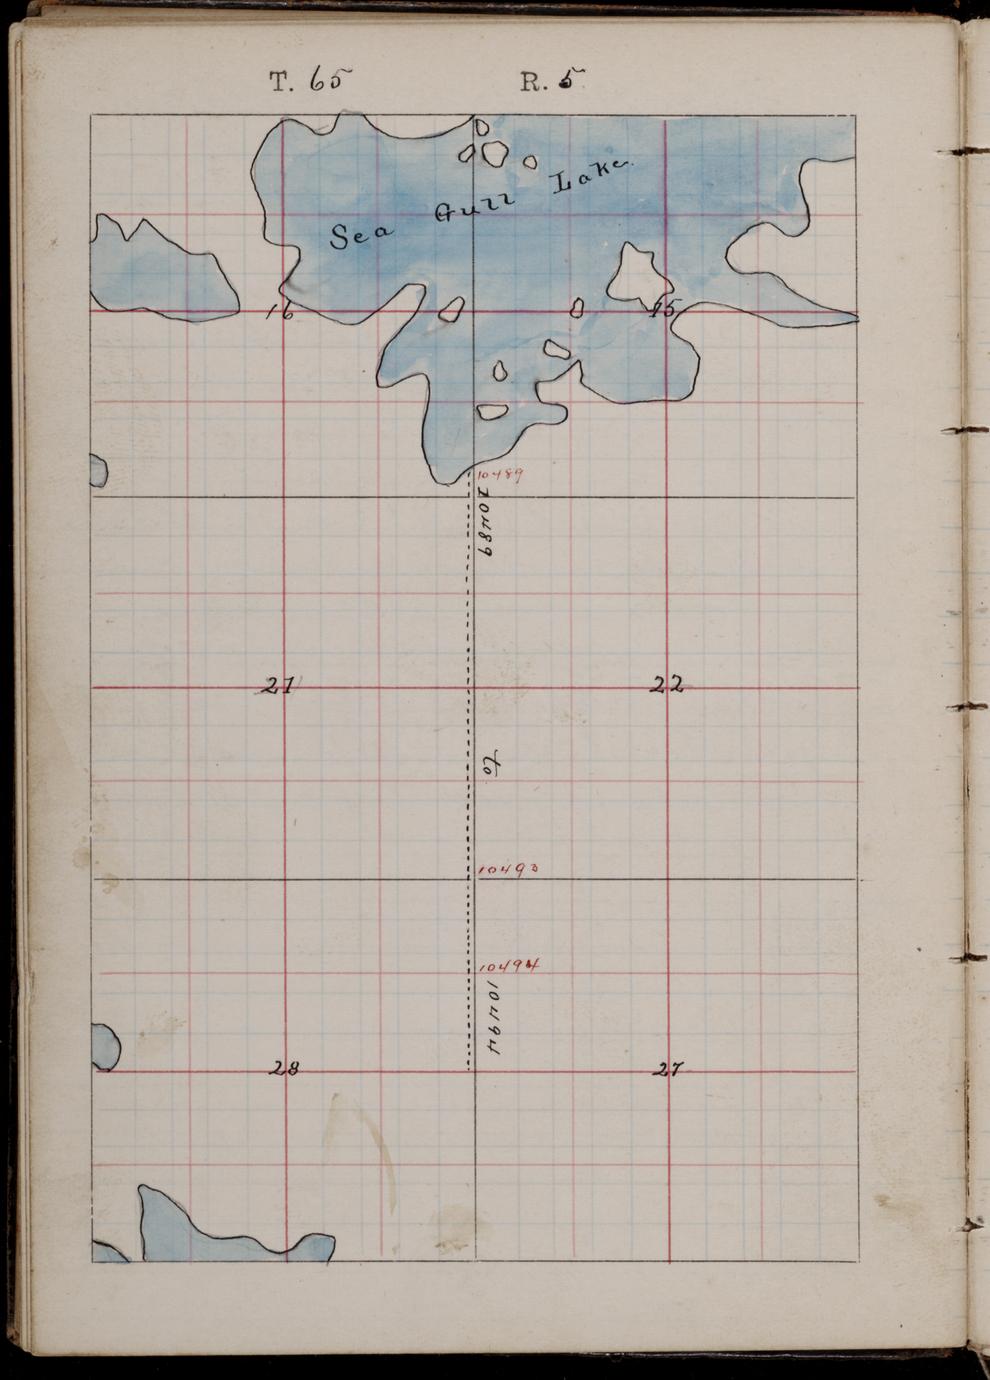 T. 65 R. 5
Sea Gull Lake
16 15
10489
10489
21 22
to
10493
10494
10494
28 27